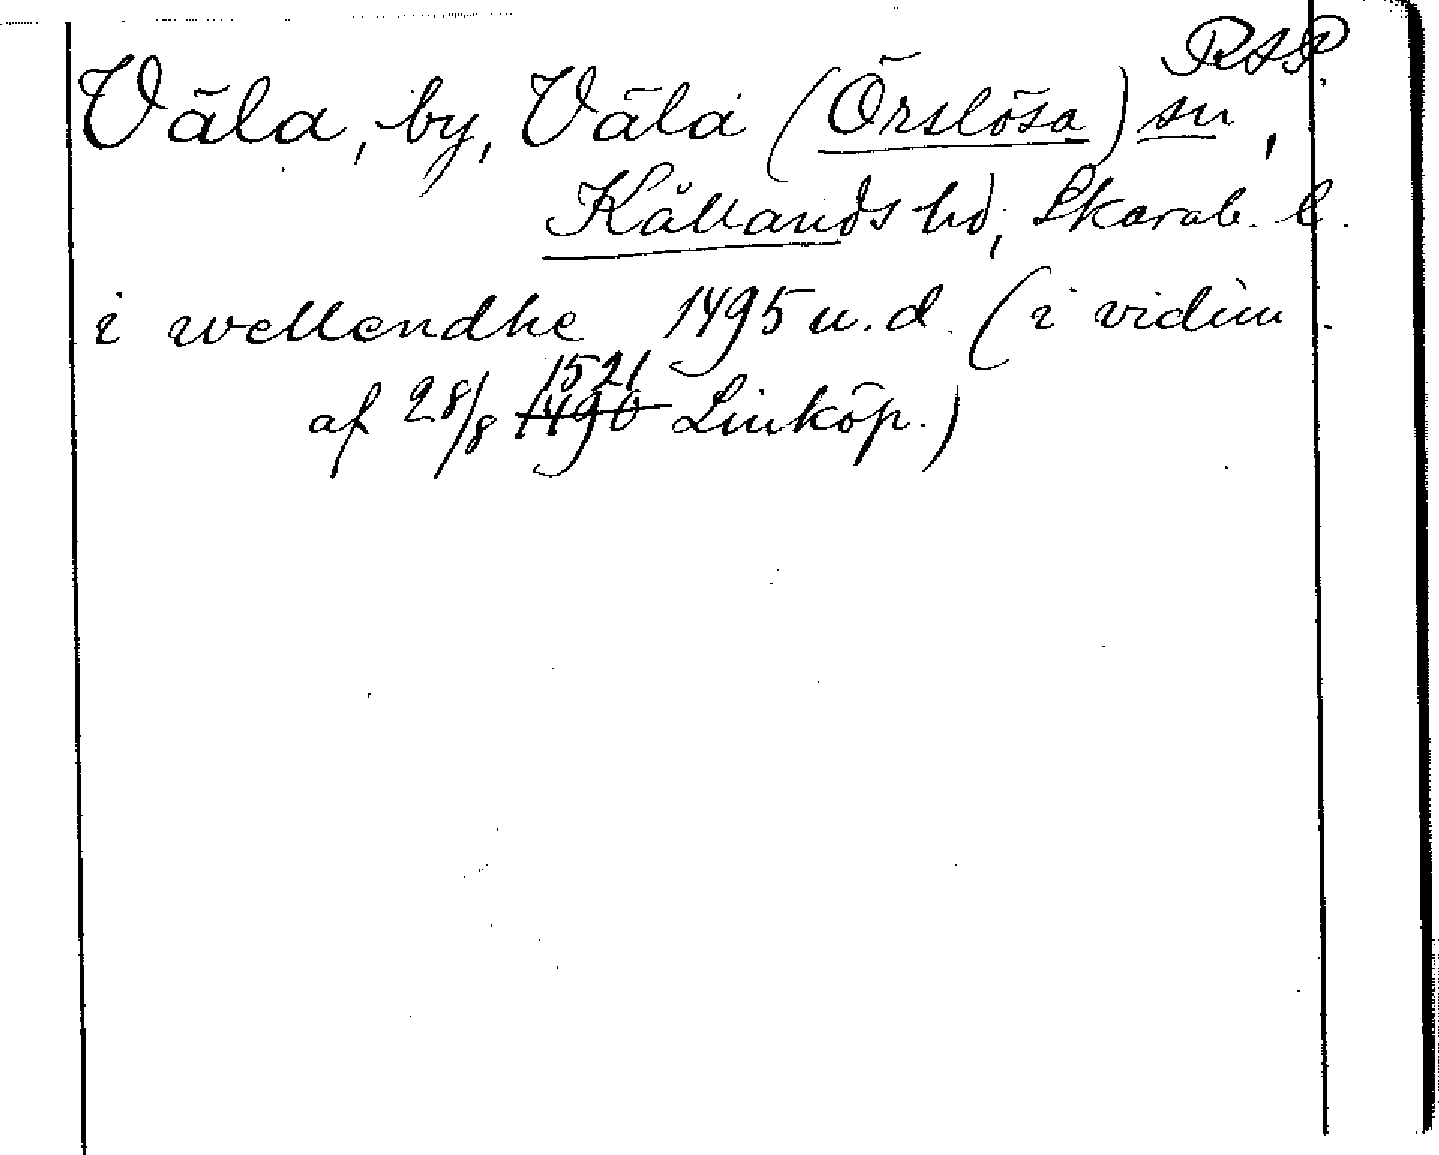 RAP.
Väla, by, Väla (Örslösa) sn,
Kållands hd, Skarab. l.
i wellendhe 1495 u. d. (i vidim.
1521
af 28/8 1490 Linköp.)